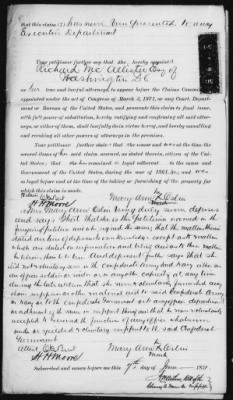 that this claim (2) has never been presented to any
Executive Department
Your petitioner further say that she hereby appoint
Richard McAllister Esq of
Washington D.C.
as her true and lawful attorney to appear before the Claims
appointed under the act of Congress of March 3, 1871, or any Court, Depart-
ment or Bureau of the United States, and prosecute this claim to
with full power of substitution, hereby ratifying and confirming all said attor-
neys, or either of them, shall lawfully do in virtue hereof, and hereby cancelling
and revoking all other powers of attorney in the premises.
Your petitioner further state that she was at the time the
several items of her said claim accrued, as stated therein, citizen of the Uni-
ted States; that she remained loyal adherent to the cause and
Government of the United States during the war of 1861, &c.; and was
so loyal before and at the time of the taking or furnishing of the property for
which this claim is made.
Mary Ann
H H Moore
mark
Mary Ann being duly sworn deposes
and says that she is the petitioner named in the
foregoing petition and who signed the same; that the matters therein
stated are true of deponent's own knowledge except as to matters
which are stated on information and belief and as to those matters
she believes them to be true. And deponent further says that she
did not voluntarily serve in the Confederate Army and Navy either as
an officer soldier or sailor or in any other capacity at any time
during the late rebellion that she never voluntarily furnished any
stores supplies or other material aid to said Confederate Army
or Navy or to the Confederate Government or to any officer department
or adherent of the same in support thereof and that she never voluntarily
accepted or exercised the functions of any office whatsoever
under or yielded voluntary support to the said Confederate
Government
Mary Ann
H H Moore
mark
Subscribed and sworn before me this 7th day of June 1871